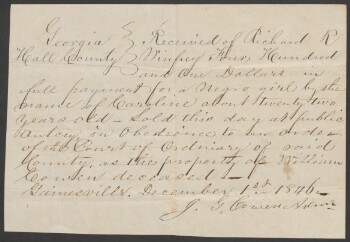 Georgia } Received of Richard R
Hall County } Winfrey Four Hundred
and One Dollars in
full payment for a Negro girl by the
name of Caroline about twenty two
years old – Sold this day at public
Outcry in Obedience to an order
of the Court of Ordinary of said
County, as the property of William
Cowen deceased –
Gainesville, December 1st 1846 –
J. G. Cowen Admr